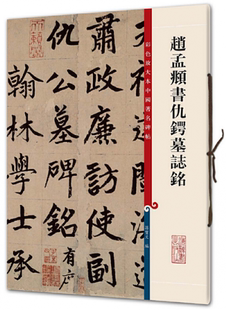 趙孟頫書仇鍔墓誌銘
彩色放大本中國著名碑帖
肅政廉訪使副
仇公墓碑銘有序
翰林學士承